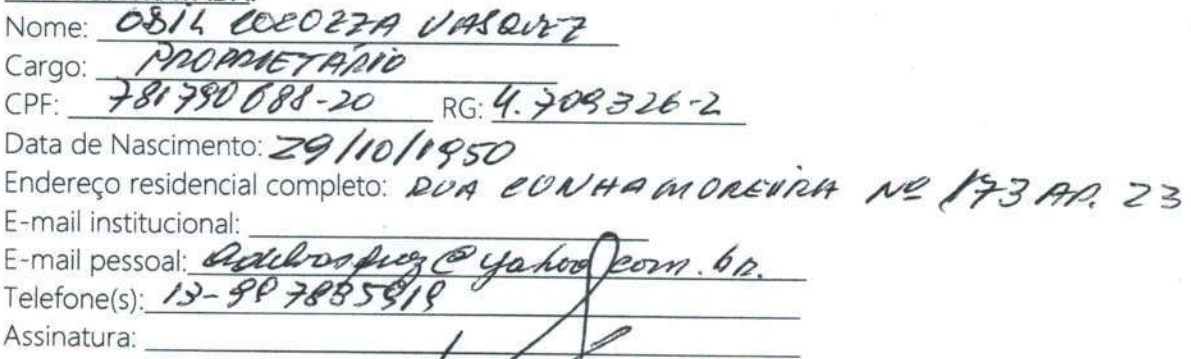 Nome: OBIL COCOZZA VASQUEZ
Cargo: PROPRIETÁRIO
CPF: 781790688-20 RG: 4.709326-2
Data de Nascimento: 29/10/1950
Endereço residencial completo: RUA CUNHA MOREIRA Nº 173 AP. 23
E-mail institucional:
E-mail pessoal: @yahoo.com.br.
Telefone(s): 13-
Assinatura: